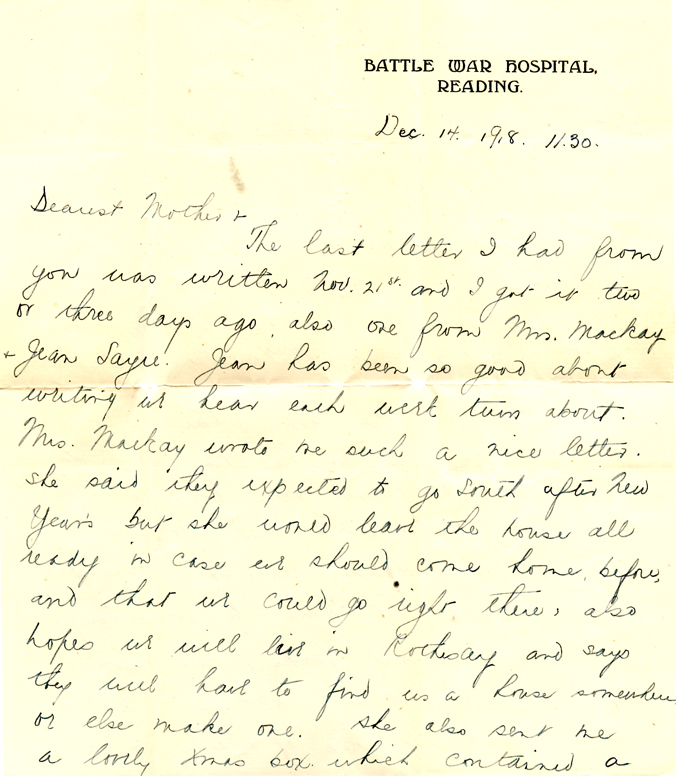 BATTLE WAR HOSPITAL,
READING.
Dec. 14. 1918. 11.30.
Dearest Mother +
The last letter I had from
you was written Nov. 21st. and I got it two
or three days ago, also one from Mrs. Mackay
+ Jean Sayre. Jean has been so good about
writing we hear each week turn about.
Mrs. Mackay wrote me such a nice letter.
she said they expected to go South after New
Year's but she would leave the house all
ready in case we should come home before,
and that we could go right there, also
hopes we will live in Rothesay and says
they will have to find us a house somewhere
or else make one. She also sent me
a lovely Xmas box which contained a